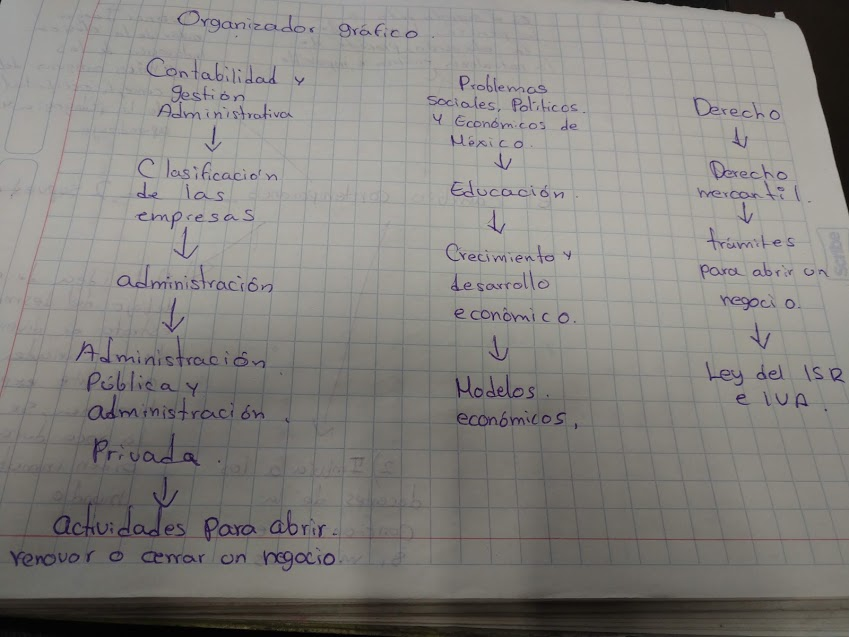 Organizador gráfico.
Contabilidad y
gestión
Administrativa
Clasificación
de las
empresas
administración
Administración
Pública y
administración.
Privada.
actividades para abrir.
renovar o cerrar un negocio.
Problemas
sociales, Políticos.
y Económicos de
México.
Educación.
Crecimiento y
desarrollo
económico.
Modelos.
económicos,
Derecho
Derecho
mercantil.
trámites
para abrir un
negocio.
Ley del ISR
e IVA.
Scribe